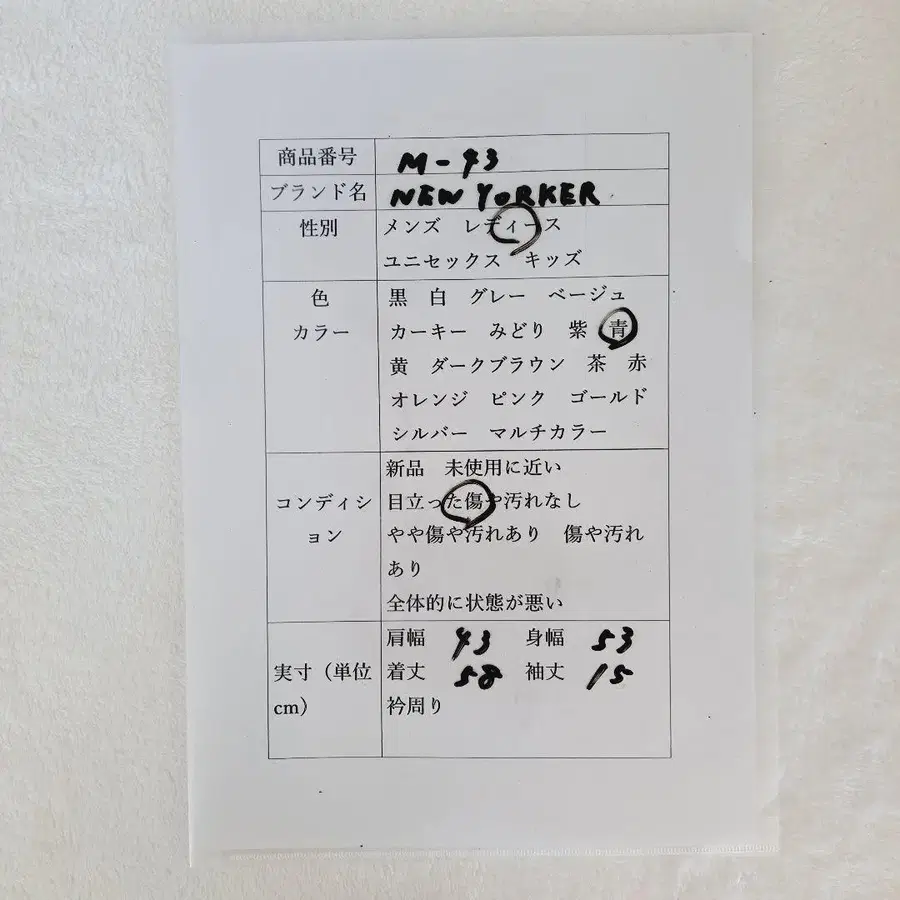 商品番号 M-43
ブランド名 NEW YORKER
性別 メンズ レディース
ユニセックス キッズ
色 黒 白 グレー ベージュ
カラー カーキー みどり 紫 青
黄 ダークブラウン 茶 赤
オレンジ ピンク ゴールド
シルバー マルチカラー
新品 未使用に近い
コンディシ 目立った傷や汚れなし
ョン やや傷や汚れあり 傷や汚れ
あり
全体的に状態が悪い
肩幅 43 身幅 53
実寸（単位 着丈 58 袖丈 15
cm） 衿周り